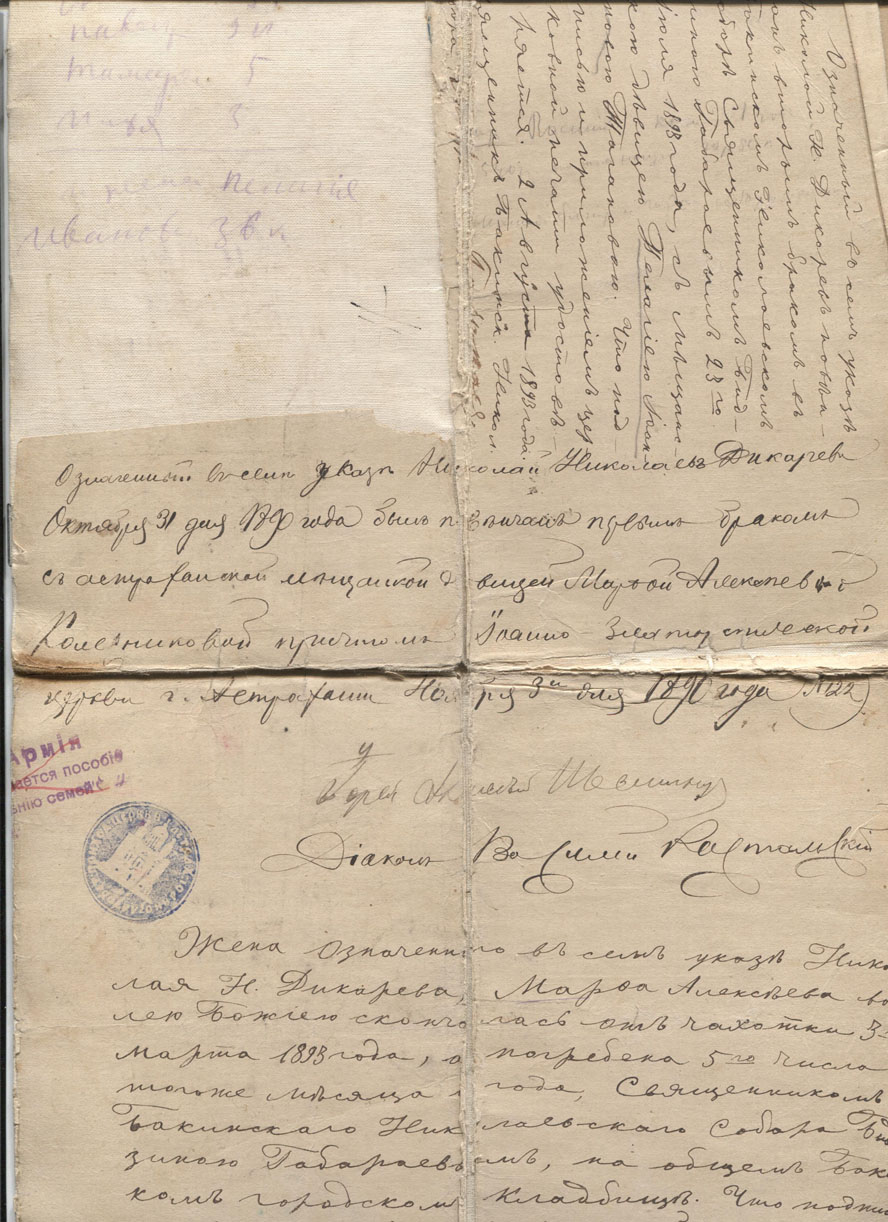 павел
тамара 5
илья 5
пелагія
Иванов
Означенный въ семъ указѣ
Николай Н. Дикоревъ повѣн-
чанъ вторымъ бракомъ въ
Бакинскомъ Николаевскомъ
Соборѣ Священникомъ Бид-
зиною Габараевымъ 23го
Іюля 1893 года, съ мѣщанс-
кою дѣвицею Пелагіею Іоан-
новою Тагановою. Что под-
писью и приложеніемъ цер
ковной печати удостовѣ-
ряется. 2 Августа 1893 года.
Священникъ Бакинск. Никол.
Означенный въ семъ указѣ Николай Николаевъ Дикаревъ
Октября 31 дня 1890 года былъ повѣнчанъ первымъ бракомъ
съ астраханской мѣщанской дѣвицей Марѳой Алексѣевной
Колесниковой причтомъ Іоанно-Златоустовской
церкви г. Астрахани Ноября 3го дня 1890 года (№122)
Армія
дается пособіе
семей
Іерей
Діаконъ Василий
Жена означеннаго въ семъ указѣ Нико
лая Н. Дикарева, Марѳа Алексѣева во
лею Божіею скончалась отъ чахотки 3го
марта 1893 года, а погребена 5го числа
тогоже мѣсяца и года, Священникомъ
Бакинскаго Николаевскаго Собора Бид
зиною Габараевымъ, на общемъ Бакинс
комъ городскомъ кладбищѣ. Что подпи